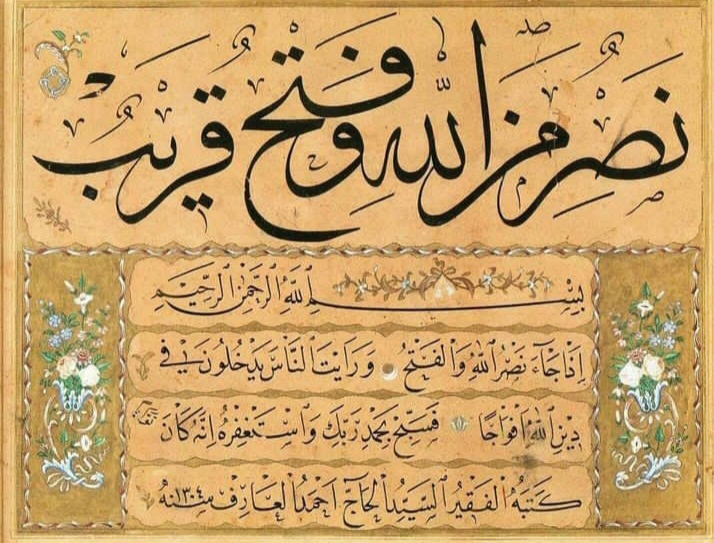 نَصْرٌ مِنَ اللّٰهِ وَفَتْحٌ قَرِيبٌ
بِسْمِ اللّٰهِ الرَّحْمٰنِ الرَّحِيمِ
اِذَا جَاءَ نَصْرُ اللّٰهِ وَالْفَتْحُ وَرَاَيْتَ النَّاسَ يَدْخُلُونَ فِي
دِينِ اللّٰهِ اَفْوَاجًا فَسَبِّحْ بِحَمْدِ رَبِّكَ وَاسْتَغْفِرْهُ اِنَّهُ كَانَ
كَتَبَهُ الْفَقِيرُ السَّيِّدُ الْحَاجّ اَحْمَدُ الْعَارِف ١٣٠٤